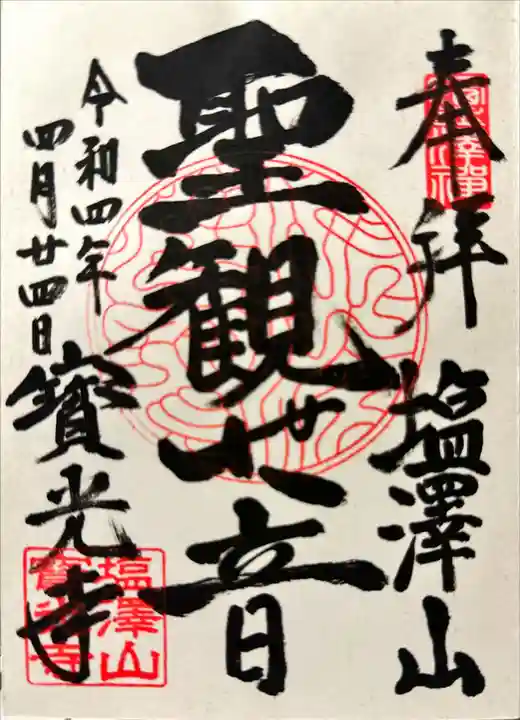 奉拝
塩澤山
聖観世音
令和四年
四月廿四日
寳光寺
塩澤山
寳光寺